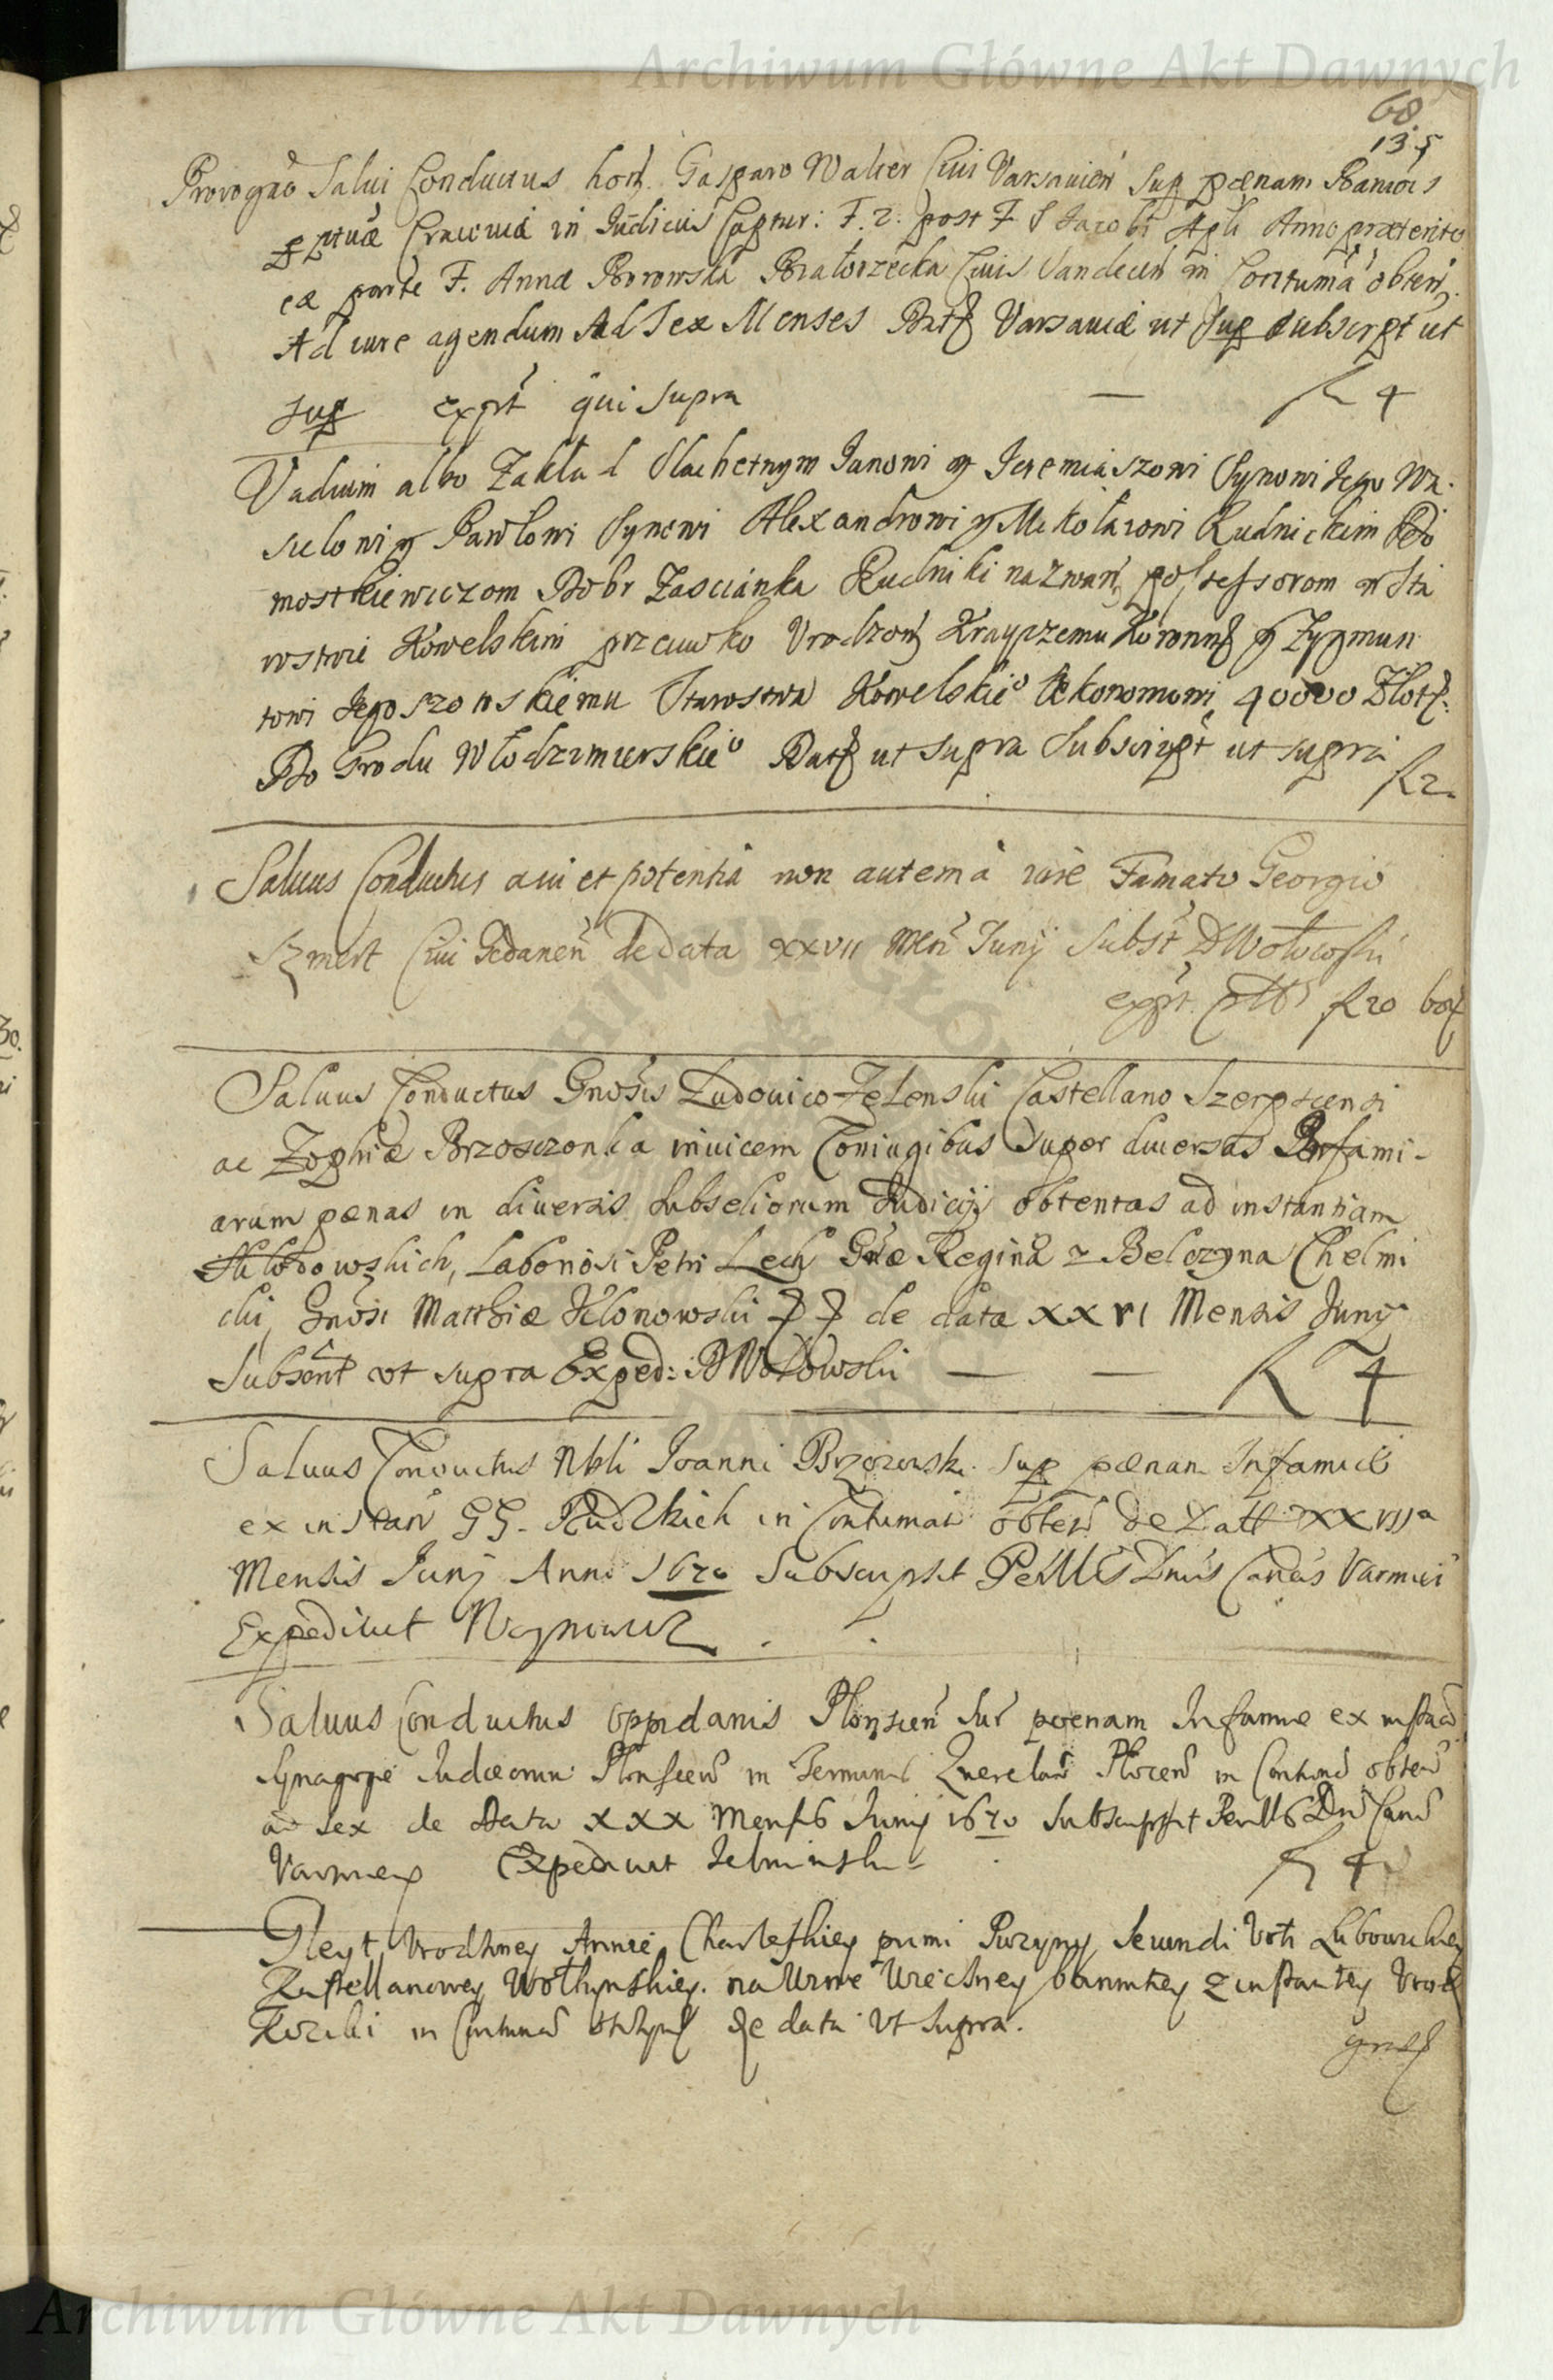 Archiwum Główne Akt Dawnych
68.
135
Prorogaõ Salui Conductus hon. Gasparo Walter Ciui Varsauien sup pœnam Banitiois
Cracouiæ in Iudicijs Captur: F. 2. post F. S Iacobi Apli Anno præterito
ex parte F. Anna Borowska Ciuis in Contuma obten.
Ad iure agendum Ad Sex Menses Dat Varsauiæ ut sup subscrpt ut
sup exprt qui supra — R 4
Vadium albo Zakład Slachetnym Janowi y Jeremiaszowi Synowi Jego Wa
silowi y Pawłowi Synowi Alexandrowi y Mikołaiowi Rudnickim
mostkiewiczom Dobr Zascianka Rudniki nazwan possessorom w Sta
rostwie Kowelskim przeciwko Vrodzon Krayczemu Koronn y Zygmun
towi Jegoszowskiemu Starostwa Kowelskie° Ekonomowi 40000 Złot.
Do Grodu Włodzimierskie° Dat ut supra Subscript ut supra
R 2.
Saluus Conductus a ui et potentia non autem a iure Famato Georgio
Szmert Ciui Gedanen de data xxvii men Iunij Subst D Wołowski
exprt R 20
Saluus Conductus Gnosis Ludouico Zelenski Castellano Szerpscensi
ac Zophiæ Brzosczonka inuicem Coniugibus Super diuersas Infami-
arum pœnas in diuersis Subseliorum Iudicijs obtentas ad instantiam
Labonosi Petri Lech Gnæ Regina z Belczyna Chelmi
cki, Gnosi Matthiæ Klonowski de data xxvi Mensis Iunij
Subscnt vt supra Exped: D Wołowski — — R 4
Saluus Conductus Nbli Ioanni Brzozowski sup pœnam Infamiæ
ex instan GG. Rudzkich in Contumac obten de Datt xxvij a
Mensis Iunij Anni 1670 Subscripsit PerIllris Dnus Cancus Varmien
Expediuit Woynowicz
Saluus Conductus oppidanis Plonscen Sup poenam Infamiæ ex instan
Synagogæ Iudæorum Plonscen in Terminis Querelar Plocen in Contuma obten
ad sex de Data xxx Mensis Iunij 1670 Subscripsit Perillris Dns Canc
Varmien Expediuit R 4
Gleyt Vrodzoney Annie Charleskiey primi Puzyny, Secundi Voti
Kastellanowey Wołhynskiey. na Wine Wieczney bannitiey z instantiey Vrodz
in Contuma de data Vt Supra.
gratis
Archiwum Główne Akt Dawnych